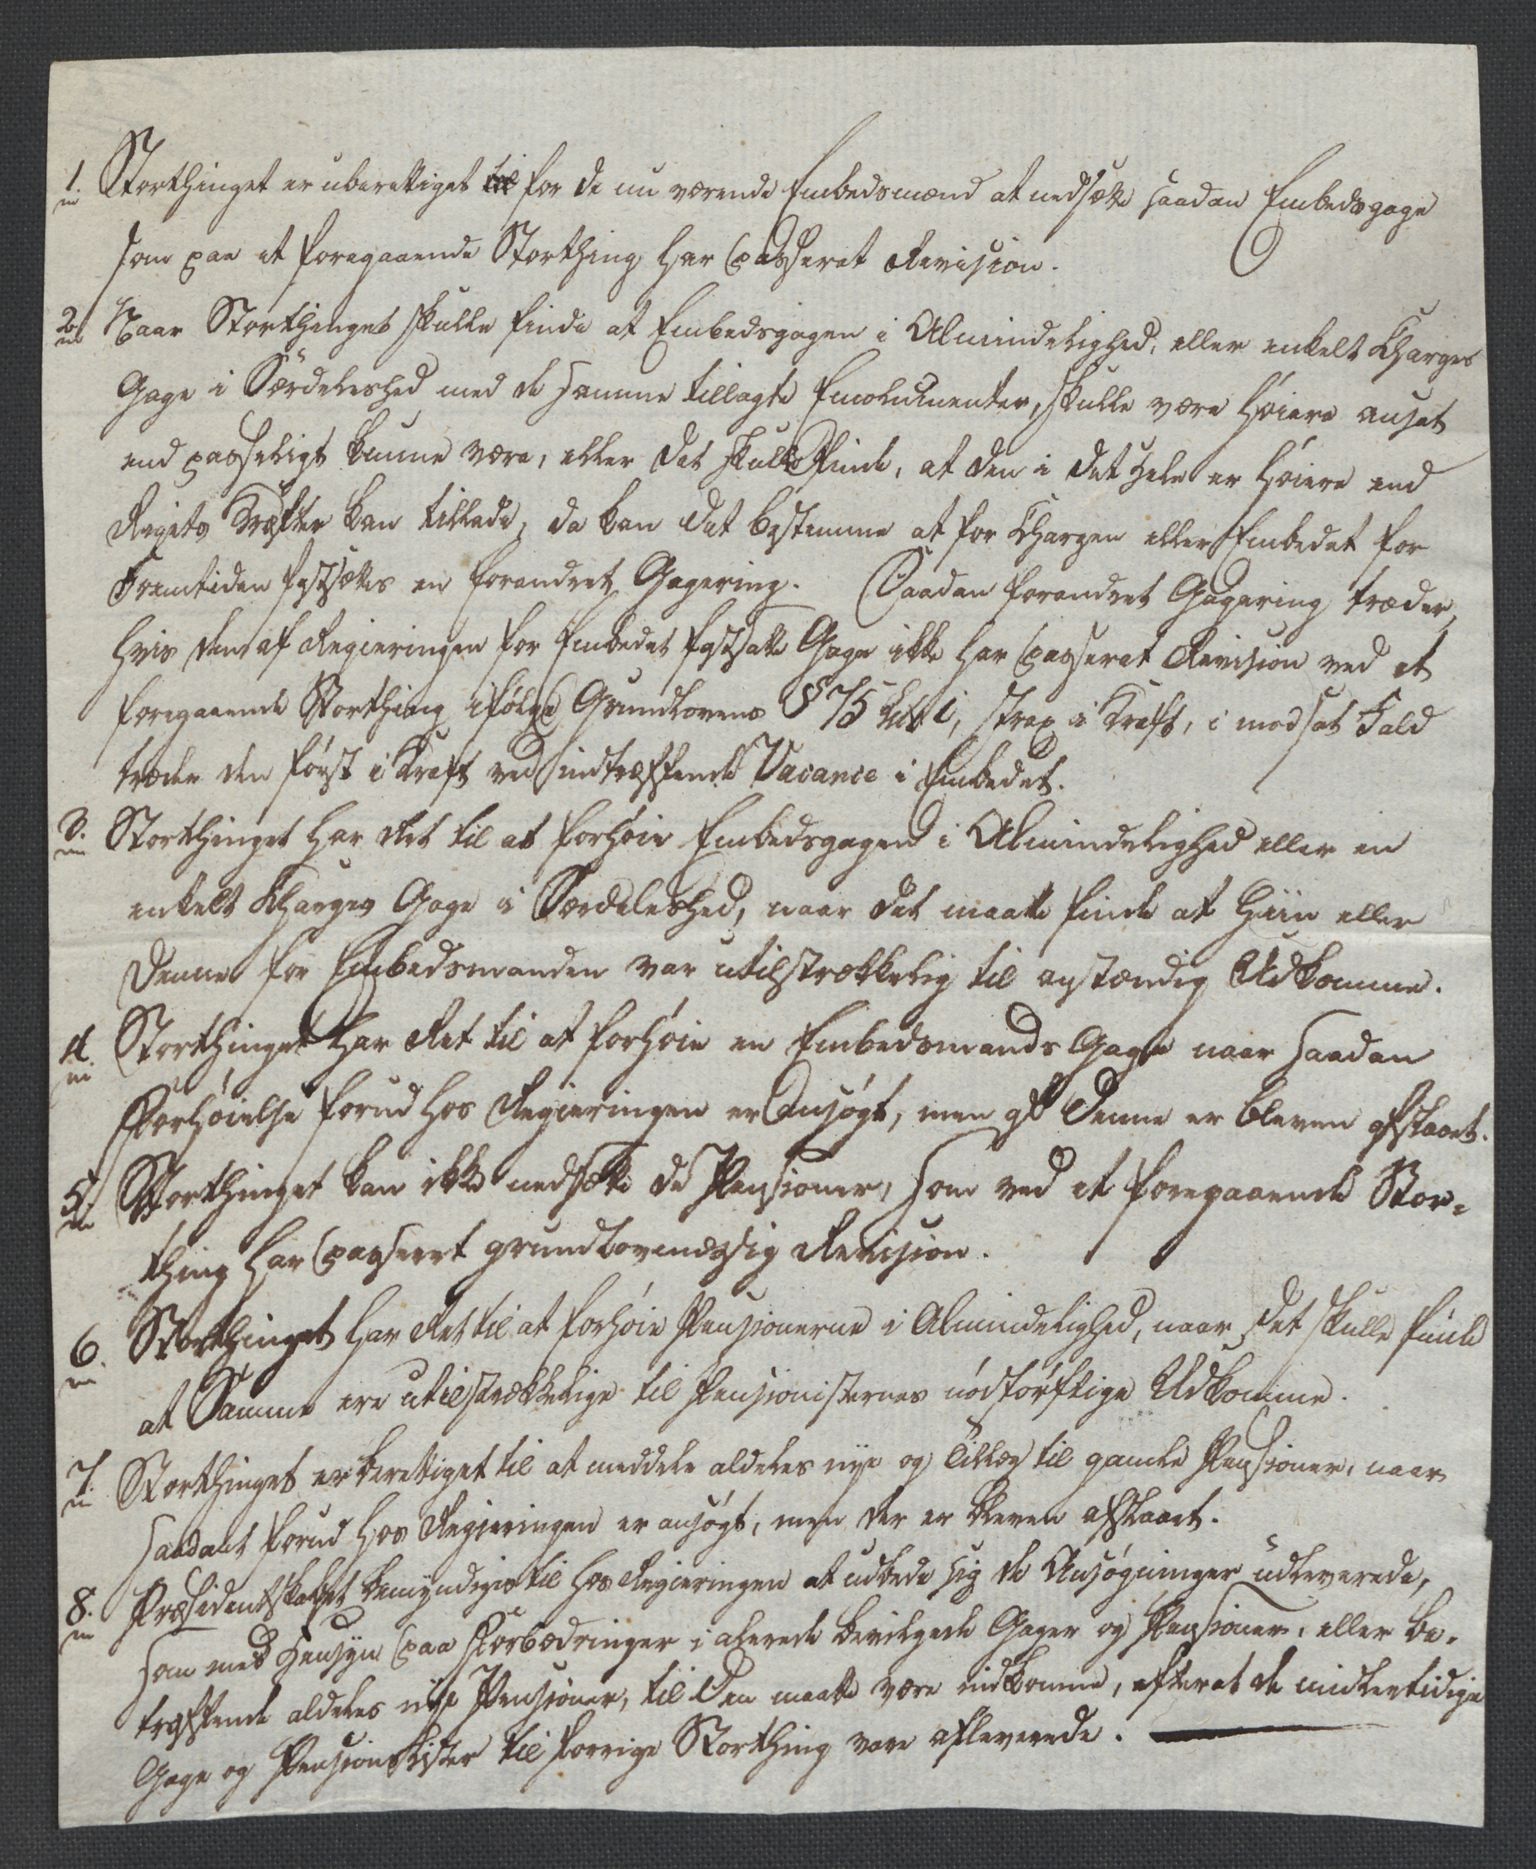 1. Storthinget er uberettiget til for de nu værende Embedsmænd at nedsætte saadan Embedsgage
som paa et foregaaende Storthing har passeret Revision.
2. Naar Storthinget skulle finde at Embedsgagen i Almindelighed, eller enkelt Charges
Gage i Særdeleshed med de samme tillagte Emolumenter, skulle være høiere ansat
end passeligt kunne være, eller det skulle finde, at den i det Hele er høiere end
Rigets Kræfter kan tillade, da kan det bestemme at for Chargen eller Embedet for
Fremtiden fastsættes en forandret Gagering. Saadan forandret Gagering træder,
hvis den af Regieringen for Embedet fastsatte Gage ikke har passeret Revision ved et
foregaaende Storthing ifølge Grundlovens § 75 Litr i, strax i Kraft, i modsat Fald
træder den først i Kraft ved indtræffende Vacance i Embedet.
3. Storthinget har Ret til at forhøie Embedsgagen i Almindelighed eller en
enkelt Charges Gage i Særdeleshed, naar det maatte finde at hiin eller
denne for Embedsmanden var utilstrækkelig til anstændig Udkomme.
4. Storthinget har Ret til at forhøie en Embedsmands Gage naar saadan
Forhøielse forud hos Regieringen er ansøgt, men af denne er bleven afslaaet.
5. Storthinget kan ikke nedsætte de Pensioner, som ved et foregaaende Stor-
thing har passeret grundlovmæssig Revision.
6. Storthinget har Ret til at forhøie Pensionerne i Almindelighed, naar det skulle finde
at Samme ere utilstrækkelige til Pensionisternes nødtørftige Udkomme.
7. Storthinget er berettiget til at meddele aldeles nye og Tillæg til gamle Pensioner, naar
saadant forud hos Regieringen er ansøgt, men der er bleven afslaaet.
8. Præsidentskabet bemyndiges til hos Regieringen at udbede sig de Ansøgninger udleverede,
som med Hensyn paa Forbedringer i allerede bevilgede Gager og Pensioner, eller be-
træffende aldeles nye Pensioner, til den maatte være indkomne, efterat de midlertidige
Gage og Pensionslister til forrige Storthing vare afleverede.